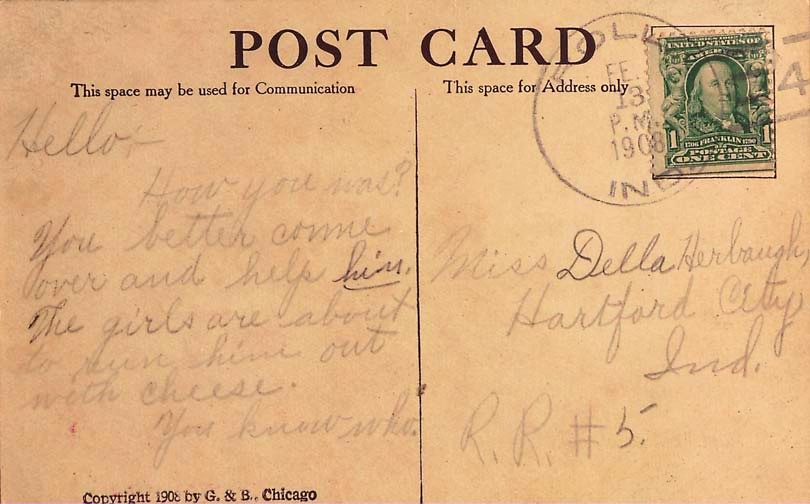 POST CARD
This space may be used for Communication
This space for Address only
FE.
13
P.M.
1908
IND.
4
UNITED STATES OF
AMERICA
1 1706 FRANKLIN 1790 1
POSTAGE
ONE CENT
Hello-
How you was?
You better come
over and help him.
The girls are about
to run him out
with cheese.
You know who.
Miss Della Herbaugh,
Hartford City
Ind.
R. R. # 5.
Copyright 1908 by G. & B., Chicago